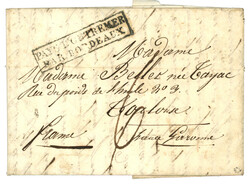 PAYS D'OUTREMER
PAR BORDEAUX
Madame
Madame Bellet née Cayac
Rue du poids de l'huile N° 3.
Toulouse
France